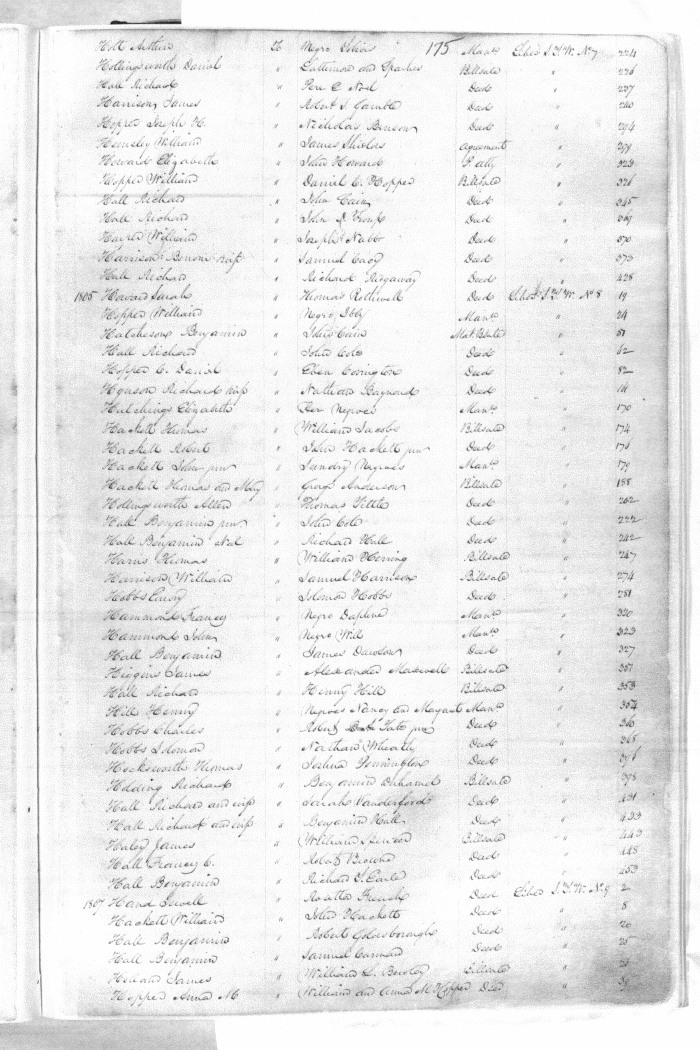 Holt Arthur To Negro 175 Manu Liber S.T.W. No 7 224
Hollingsworth Daniel " Lattimore and Sparks Billsale " 226
Hall Richard " Pere Noel Deed " 237
Harrison James " Robert S. Gamble Deed " 240
Hopper Joseph H. " Nicholas Benson Deed " 294
Hemsley William " James Shields Agreement " 299
Howard Elizabeth " John Howard P. atty " 323
Hopper William " Daniel C. Hopper Billsale " 326
Hall Richard " John Cain Deed " 345
Hall Richard " John Deed " 369
William " Joseph Nabb Deed " 370
Harrison Benoni " Samuel Deed " 373
Hall Richard " Richard Ridgaway Deed " 428
1805 Howard Sarah " Thomas Rothwell Deed Liber S.T.W. No 8 19
Hopper William " Negro Ibby Manu " 24
Hutcheson Benjamin " John Cain " 51
Hall Richard " John Cole Deed " 62
Hopper C. Daniel " Eben Covington Deed " 82
Hynson Richard " Nathan Deed " 111
Hutchings Elizabeth " Her Negroes Manu " 170
Hackett Thomas " William Jacobs Billsale " 174
Hackett Robert " John Hackett jun Deed " 176
Hackett John jun " Sundry Negroes Manu " 179
Hackett Thomas and Mary " George Anderson Billsale " 188
Hollingsworth Allen " Thomas Tittle Deed " 202
Hall Benjamin jun " John Cole Deed " 222
Hall Benjamin " Richard Hall Deed " 242
Harris Thomas " William Herring Billsale " 247
Harrison William " Samuel Harrison Billsale " 274
Hobbs Emory " Solomon Hobbs Deed " 281
Hammond Francis " Negro Daphne Manu " 320
Hammond John " Negro Will Manu " 323
Hall Benjamin " James Dawson Deed " 327
Higgins James " Alexander Maxwell Billsale " 351
Hall Richard " Henny Hill Billsale " 353
Hill Henny " Negroes Nancy and Margaret Manu " 354
Hobbs Charles " Robert Tate jun Deed " 360
Hobbs Solomon " Nathan Wheatly Deed " 368
Hocksworth Thomas " Joshua Pennington Deed " 376
Holding Richard " Benjamin Duhamel Billsale " 398
Hall Richard and wife " Sarah Vanderford Deed " 431
Hall Richard and wife " Benjamin Hall Deed " 433
Haley James " William Spencer Billsale " 443
Hall Francis C. " Robert Browne Deed " 448
Hall Benjamin " Richard T. Earle Deed " 453
1807 Hand Sewell " French Deed Liber S.T.W. No 9 2
Hackett William " John Hackett Deed " 8
Hall Benjamin " Robert Goldsborough Deed " 20
Hall Benjamin " Samuel Deed " 25
James " William Billsale "
Hopper Anna M. " William and Anna M Hopper Deed "